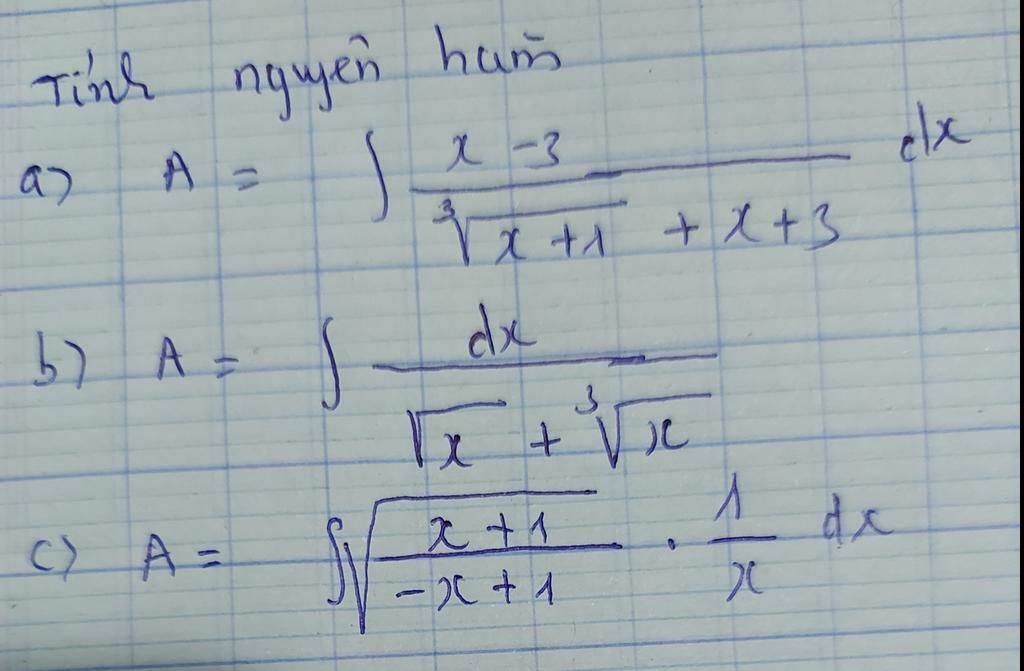 Tính nguyên hàm
a) A = ∫ (x - 3)/(∛(x + 1) + x + 3) dx
b) A = ∫ dx/(√x + ∛x)
c) A = ∫ √((x + 1)/(-x + 1)) . 1/x dx